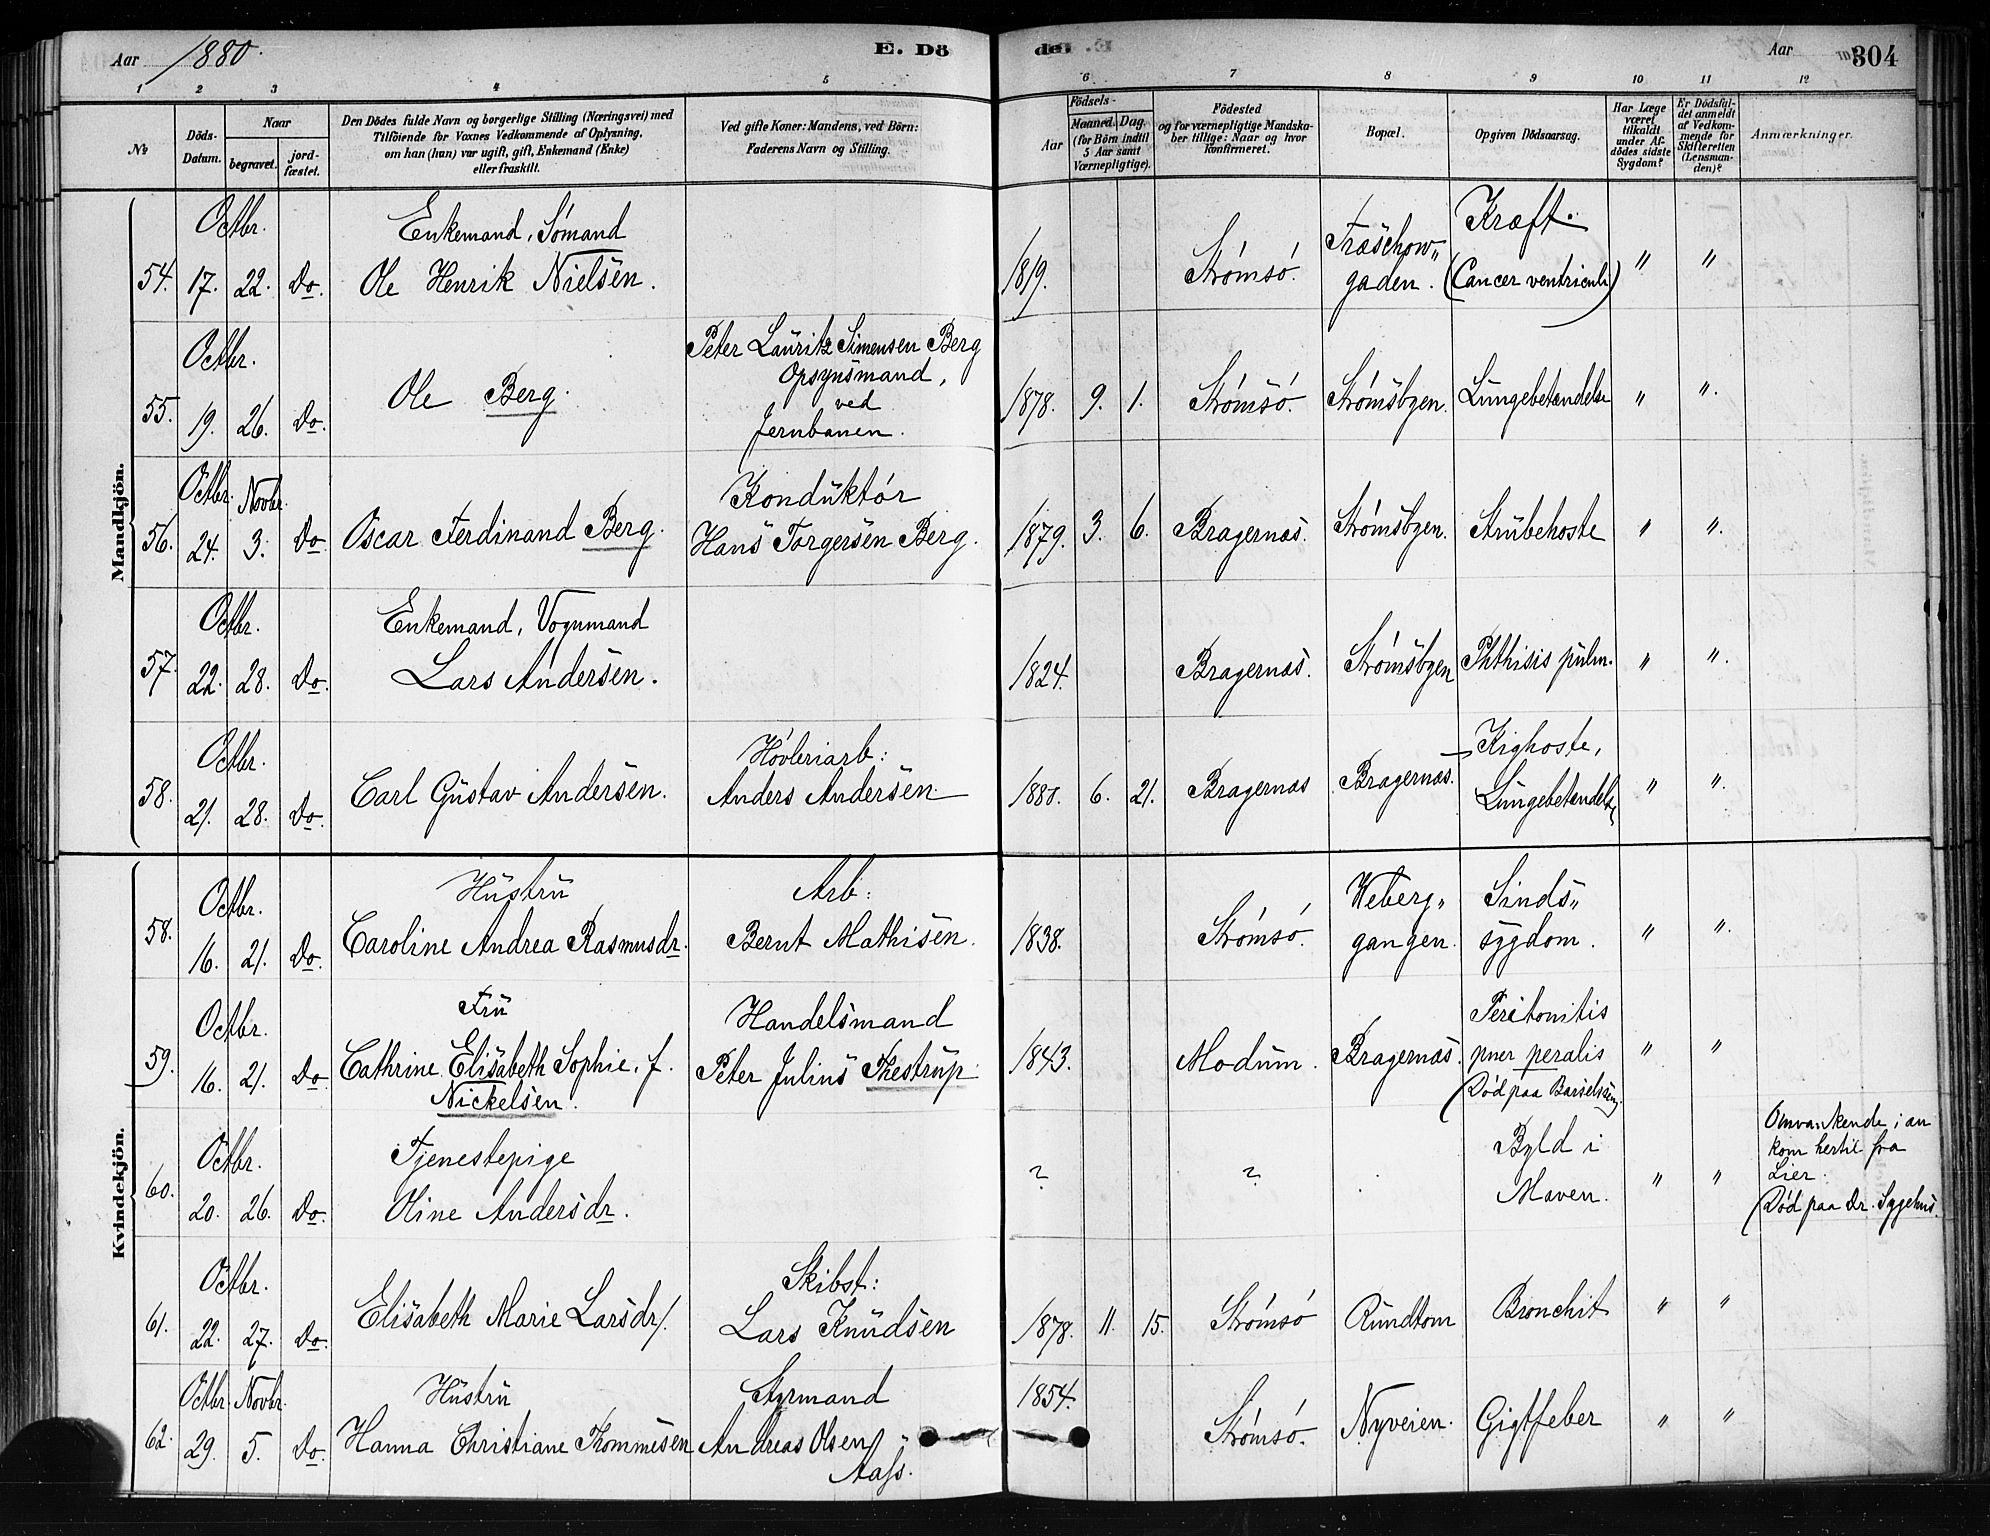 Aar 1880.
E. Dö
de.
Aar
304
1 2 3 4 5 6 7 8 9 10 11 12
No
Döds-
Datum.
Naar
begravet.
jord-
fæstet.
Den Dödes fulde Navn og borgerlige Stilling (Næringsvei) med
Tilföiende for Voxnes Vedkommende af Oplysning,
om han (hun) var ugift, gift, Enkemand (Enke)
eller fraskilt.
Ved gifte Koner: Mandens, ved Börn:
Faderens Navn og Stilling.
Födsels-
Aar
Maaned. Dag.
(for Börn indtil
5 Aar samt
Værnepligtige).
Födested
og for værnepligtige Mandska-
ber tillige: Naar og hvor
konfirmeret.
Bopæl.
Opgiven Dödsaarsag.
Har Læge
været
tilkaldt
under Af-
dödes sidste
Sygdom?
Er Dödsfal-
det anmeldt
af Vedkom-
mende for
Skifteretten
(Lensman-
den)?
Anmærkninger.
Mandkjön.
54. Octbr. 17. 22. Do.
Enkemand, Sómand
Ole Henrik Nielsen.
1819. Strómsó.
Træschow„
gaden.
Kræft.
(Cancer ventriculi)
„ „
55. Octbr. 19. 26. Do.
Ole Berg.
Peter Lauritz Simensen Berg
Opsynsmand,
ved
Jernbanen.
1878. 9. 1. Strómsó. Strómsbgen. Lungebetændelse „ „.
56. Octbr. 24. Novbr. 3. Do
Oscar Ferdinand Berg.
Konduktór
Hans Torgersen Berg.
1879. 3. 6. Bragernæs. Strómsbgen. Strubehoste „ „.
57. Octbr. 22. 28. Do.
Enkemand, Vognmand
Lars Andersen.
1824. Bragernæs. Strómsbgen Phthisis pulm. „ „.
58. Octbr. 21. 28. Do.
Carl Gustav Andersen.
Hóvleriarb:
Anders Andersen
1880. 6. 21. Bragernæs Bragernæs.
Kighoste,
Lungebetændelse
„ „.
Kvindekjön.
58. Octbr. 16. 21. Do.
Hustru
Caroline Andrea Rasmusdr.
Arb:
Bernt Mathisen.
1838. Strómsó.
Weberg„
gangen.
Sinds„
sygdom.
„ „.
59. Octbr. 16. 21. Do
Fru
Cathrine Elisabeth Sophie, f.
Nickelsen.
Handelsmand
Peter Julius Thestrup
1843. Modum. Bragernæs.
Peritonitis
puer peralis
(Dód paa Barselseng
„ „
60. Octbr. 20. 26. Do.
Tjenestepige
Oline Andersdr.
? ?
Byld i
Maven.
„ „
kom hertil fra
Lier.
(Dód paa Dr. Sygehus.
61. Octbr. 22. 27. Do.
Elisabeth Marie Larsdr/.
Skibst:
Lars Knudsen
1878. 11. 15. Strómsó Rundtom Bronchit „ „
62. Octbr. 29. Novbr. 5. Do.
Hustru
Hanna Christiane Thommesen
Styrmand
Andreas Olsen
Aass.
1854. Strómsó. Nyveien. Gigtfeber „ „